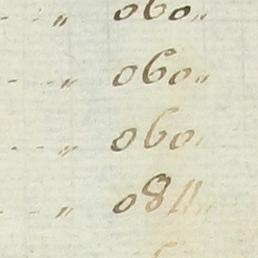 - - " 060"
- - " 060"
- - " 060"
- - " 084"